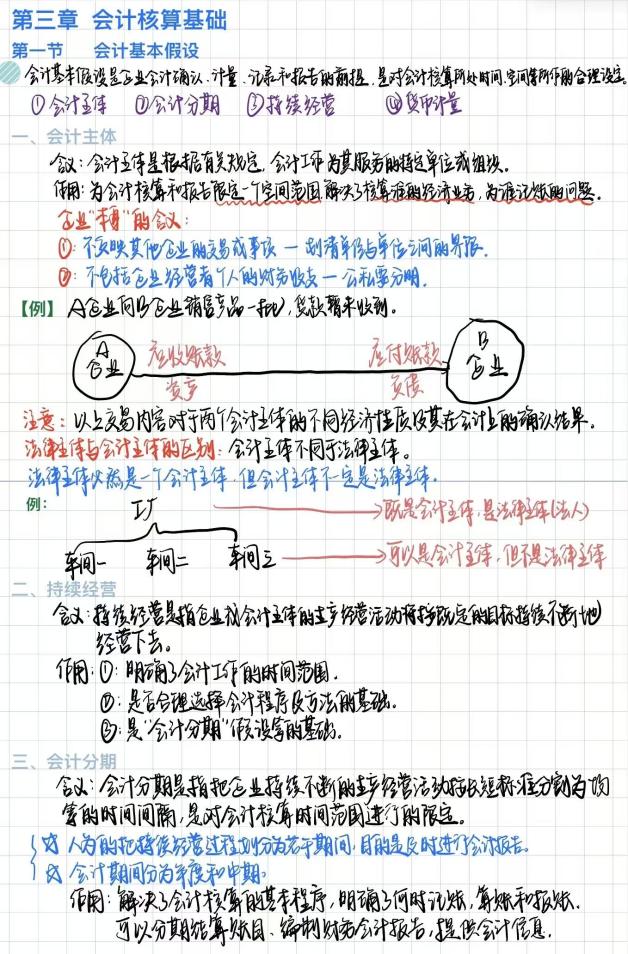 第三章 会计核算基础
第一节 会计基本假设
会计基本假设是企业会计确认、计量、记录和报告的前提,是对会计核算所处时间、空间等所作的合理设定。
①会计主体 ②会计分期 ③持续经营 ④货币计量
一、会计主体
含义:会计主体是根据有关规定,会计工作为其服务的特定单位或组织。
作用:为会计核算和报告限定一个空间范围,解决了核算谁的经济业务,为谁记账的问题。
企业"本身"的含义:
①:不反映其他企业的交易或事项 — 划清单位与单位之间的界限.
②:不包括企业经营者个人的财务收支 — 公私要分明.
【例】 A企业向B企业销售产品一批,货款暂未收到。
A 企业 应收账款 应付账款 B 企业
资产 负债
注意:以上交易内容对于两个会计主体的不同经济性质及其在会计上的确认结果.
法律主体与会计主体的区别:会计主体不同于法律主体。
法律主体必然是一个会计主体,但会计主体不一定是法律主体.
例: 工厂 既是会计主体,是法律主体(法人)
车间一 车间二 车间三 可以是会计主体,但不是法律主体
二、持续经营
含义:持续经营是指企业或会计主体的生产经营活动将按既定的目标持续不断地
经营下去。
作用:①:明确了会计工作的时间范围.
②:是否合理选择会计程序及方法的基础。
③:是"会计分期"假设等的基础.
三、会计分期
含义:会计分期是指把企业持续不断的生产经营活动按长短标准分割为均
等的时间间隔,是对会计核算时间范围进行的限定。
☆ 人为的把持续经营过程划分为若干期间,目的是及时进行会计报告。
☆ 会计期间分为年度和中期。
作用:解决了会计核算的基本程序,明确了何时记账,算账和报账.
可以分期结算账目、编制财务会计报告,提供会计信息.